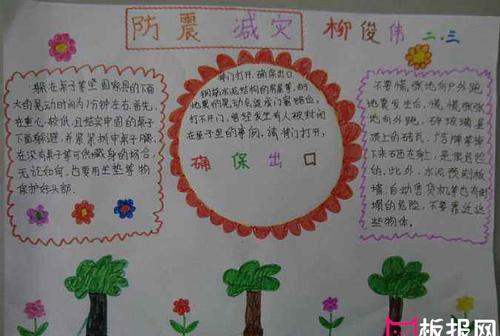 防震 减灾 柳俊伟 二.三
躲在桌子等坚固家具的下面
大的晃动时间约1分钟左右.首先,
在重心较低,且结实牢固的桌子
下面躲避,并紧紧抓牢桌子腿.
在没有桌子等可供藏身的场合,
无论如何,也要用坐垫等物
保护好头部.
将门打开,确保出口
钢筋水泥结构的房屋等,由于
地震的晃动会造成门窗错位,
打不开门,曾经发生有人被封闭
在屋子里的事例.请将门打开,
确 保 出 口
不要慌张地向户外跑
地震发生后,慌慌张张
地向外跑,碎玻璃、屋
顶上的砖瓦、广告牌等掉
下来砸在身上,是很危险
的.此外,水泥预制板
墙、自动售货机等也有倒
塌的危险,不要靠近这
些物体.
板报网